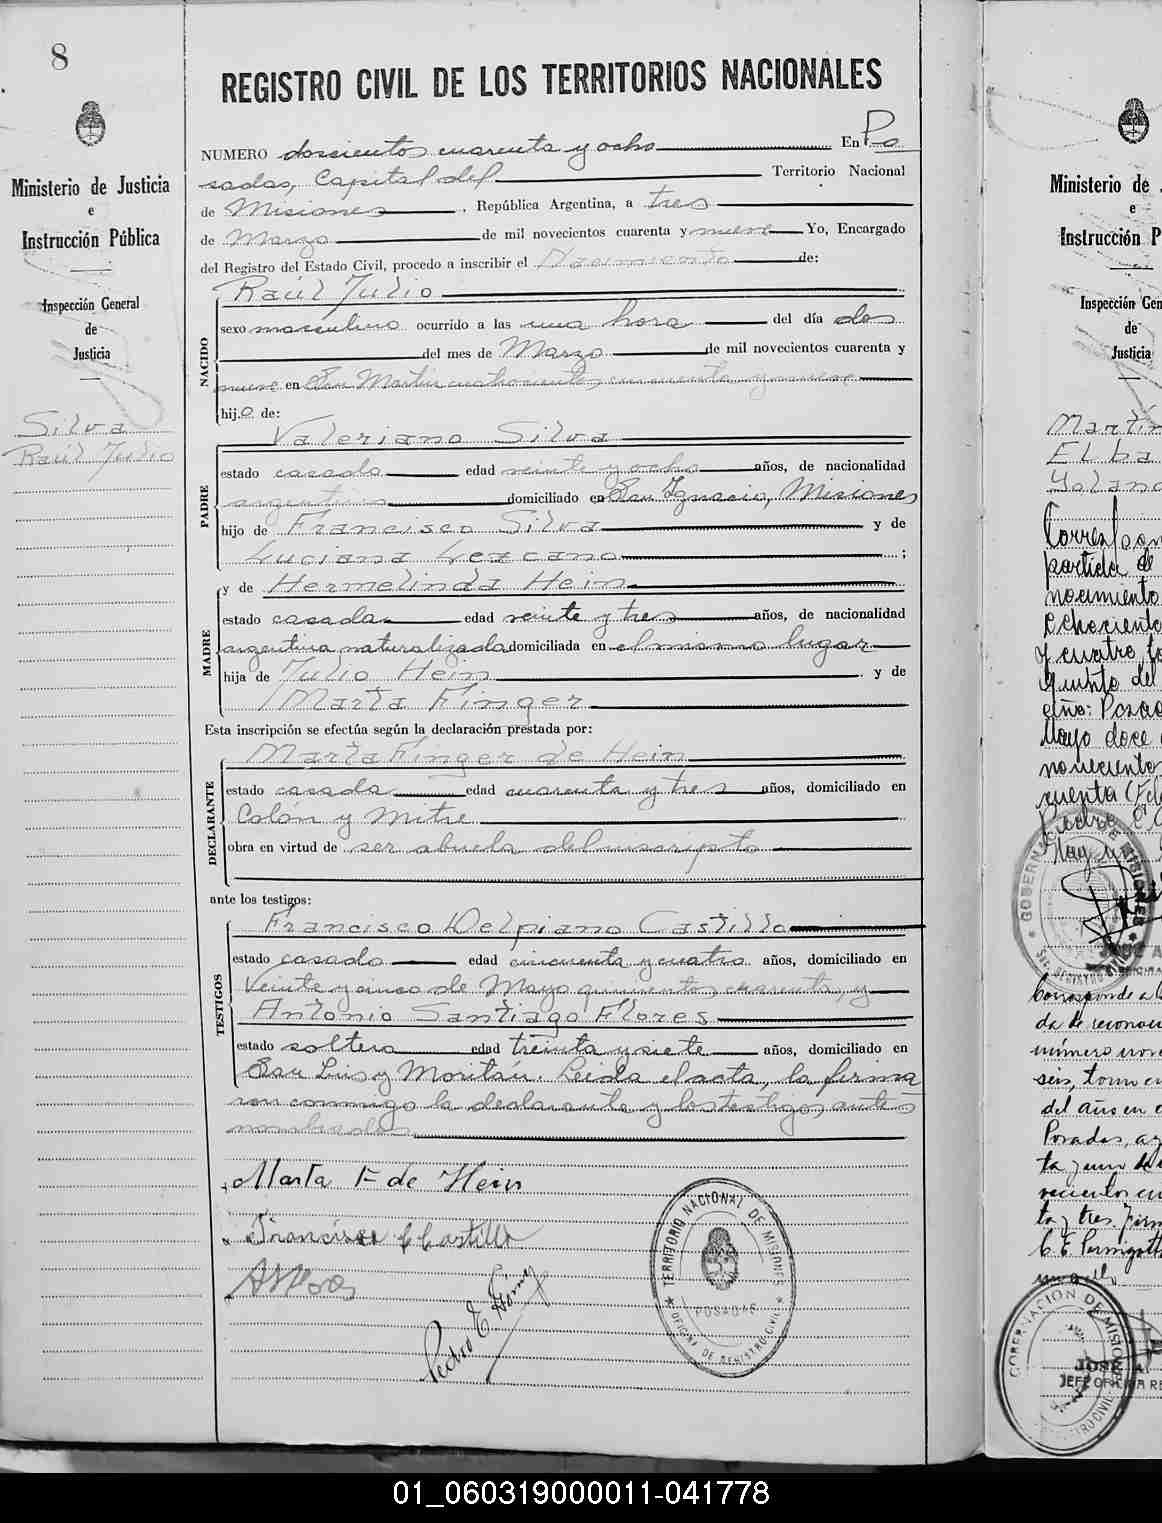 8
Ministerio de Justicia
e
Instrucción Pública
Inspección General
de
Justicia
Silva
Raúl Julio
REGISTRO CIVIL DE LOS TERRITORIOS NACIONALES
NUMERO doscientos cuarenta y ocho En Po
sadas, Capital del Territorio Nacional
de Misiones, República Argentina, a tres
de Marzo de mil novecientos cuarenta y nueve Yo, Encargado
del Registro del Estado Civil, procedo a inscribir el Nacimiento de:
NACIDO
Raúl Julio
sexo masculino ocurrido a las una hora del día dos
del mes de Marzo de mil novecientos cuarenta y
nueve en San Martin cuatrocientos cincuenta y nueve
hij.o de:
PADRE
Valeriano Silva
estado casado edad veinte y ocho años, de nacionalidad
argentino domiciliado en San Ignacio, Misiones
hijo de Francisco Silva y de
Luciana Lezcano;
MADRE
y de Hermelinda Hein
estado casada edad veinte y tres años, de nacionalidad
argentina naturalizada domiciliada en el mismo lugar
hija de Julio Hein y de
Marta Finger
Esta inscripción se efectúa según la declaración prestada por:
DECLARANTE
Marta Finger de Hein
estado casada edad cuarenta y tres años, domiciliado en
Colón y Mitre
obra en virtud de ser abuela del inscripto
ante los testigos:
TESTIGOS
Francisco Delpiano Castillo
estado casado edad cincuenta y cuatro años, domiciliado en
Veinte y cinco de Mayo quinientos cuarenta, y
Antonio Santiago Flores
estado soltero edad treinta y siete años, domiciliado en
San Luis y Moritán. Leida el acta, la firma
ron conmigo la declarante y los testigos antes
nombrados
Marta F de Hein
Francisco C Castillo
Pedro E.
TERRITORIO NACIONAL DE MISIONES
POSADAS
OFICINA DE REGISTRO CIVIL
Ministerio de
e
Instrucción P
Inspección Gen
de
Justicia
Martín
Elba
Yoland
Corresfon
partida de
nocimiento
Ochociento
y cuatro to
Quinto del
año: Posad
Mayo doce
novecientos
cuenta
GOBERNA DE MISIONES
Corresponde a la
da de reconoci
número nove
seis, tomo
del año en
Posadas,
ta y uno de
vecientos cin
ta y tres. Firm
GOBERNACION DE MISIONES
JOSE A.
JEFE OFICINA RE
01_060319000011-041778